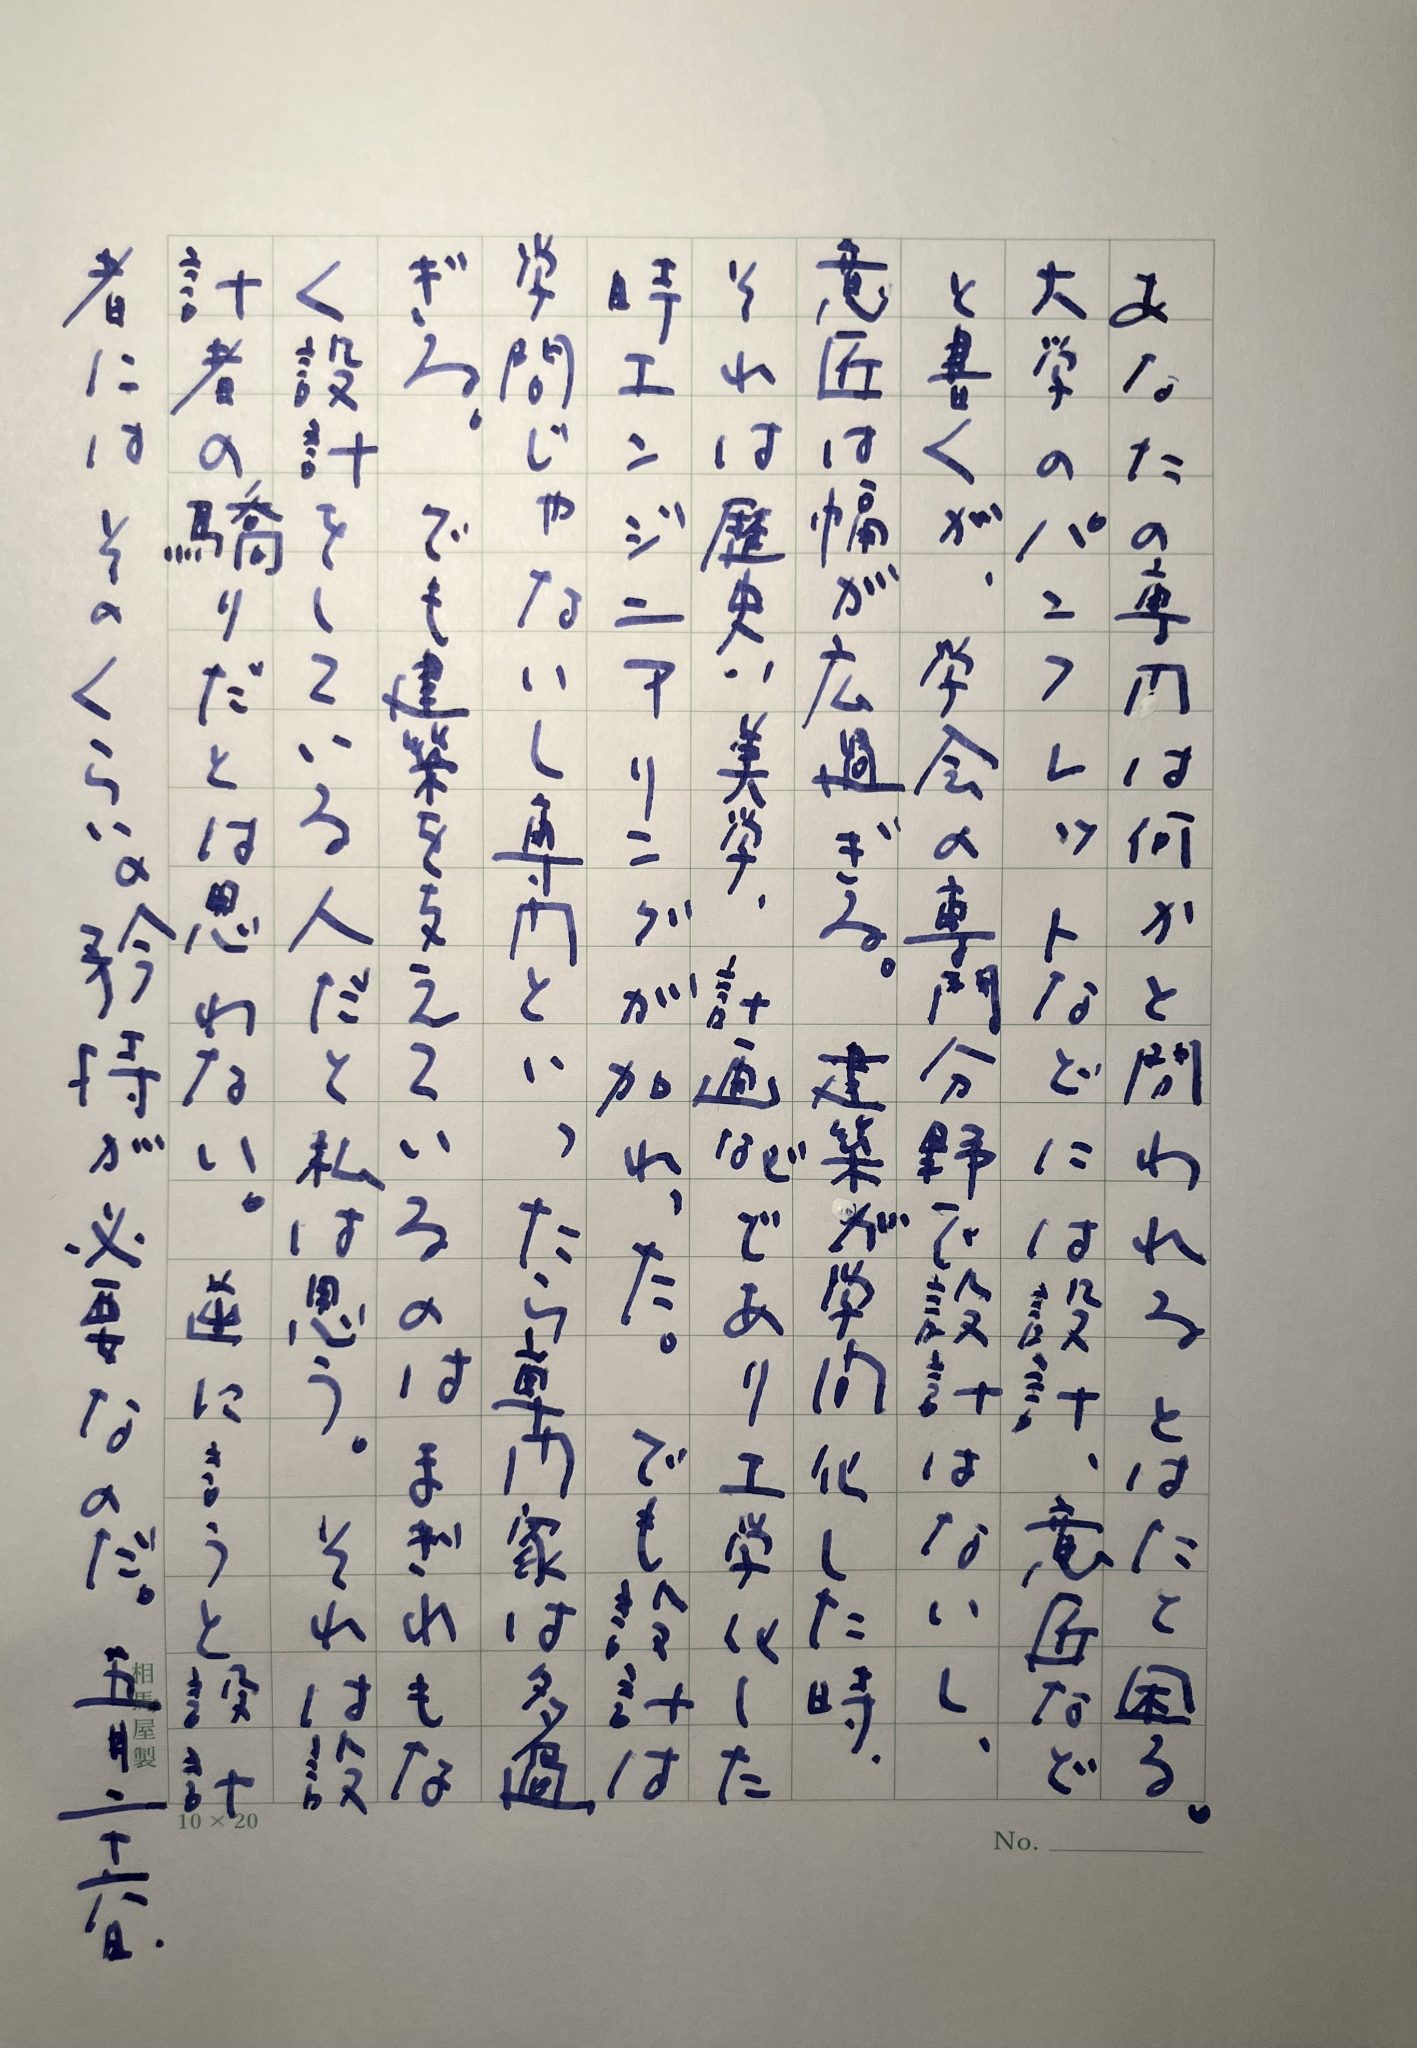 あなたの専門は何かと問われるとはたと困る。
大学のパンフレットなどには設計、意匠など
と書くが、学会の専門分野で設計はないし、
意匠は幅が広過ぎる。建築が学問化した時、
それは歴史い美学、計画などであり工学化した
時エンジニアリングが加わった。でも設計は
学問じゃないし専門といったら専門家は多過
ぎる。でも建築を支えているのはまぎれもな
く設計をしている人だと私は思う。それは設
計者の驕りだとは思わない。逆に言うと設計
者にはそのくらいの矜持が必要なのだ。五月二十六日.
相馬屋製
10 × 20
No.